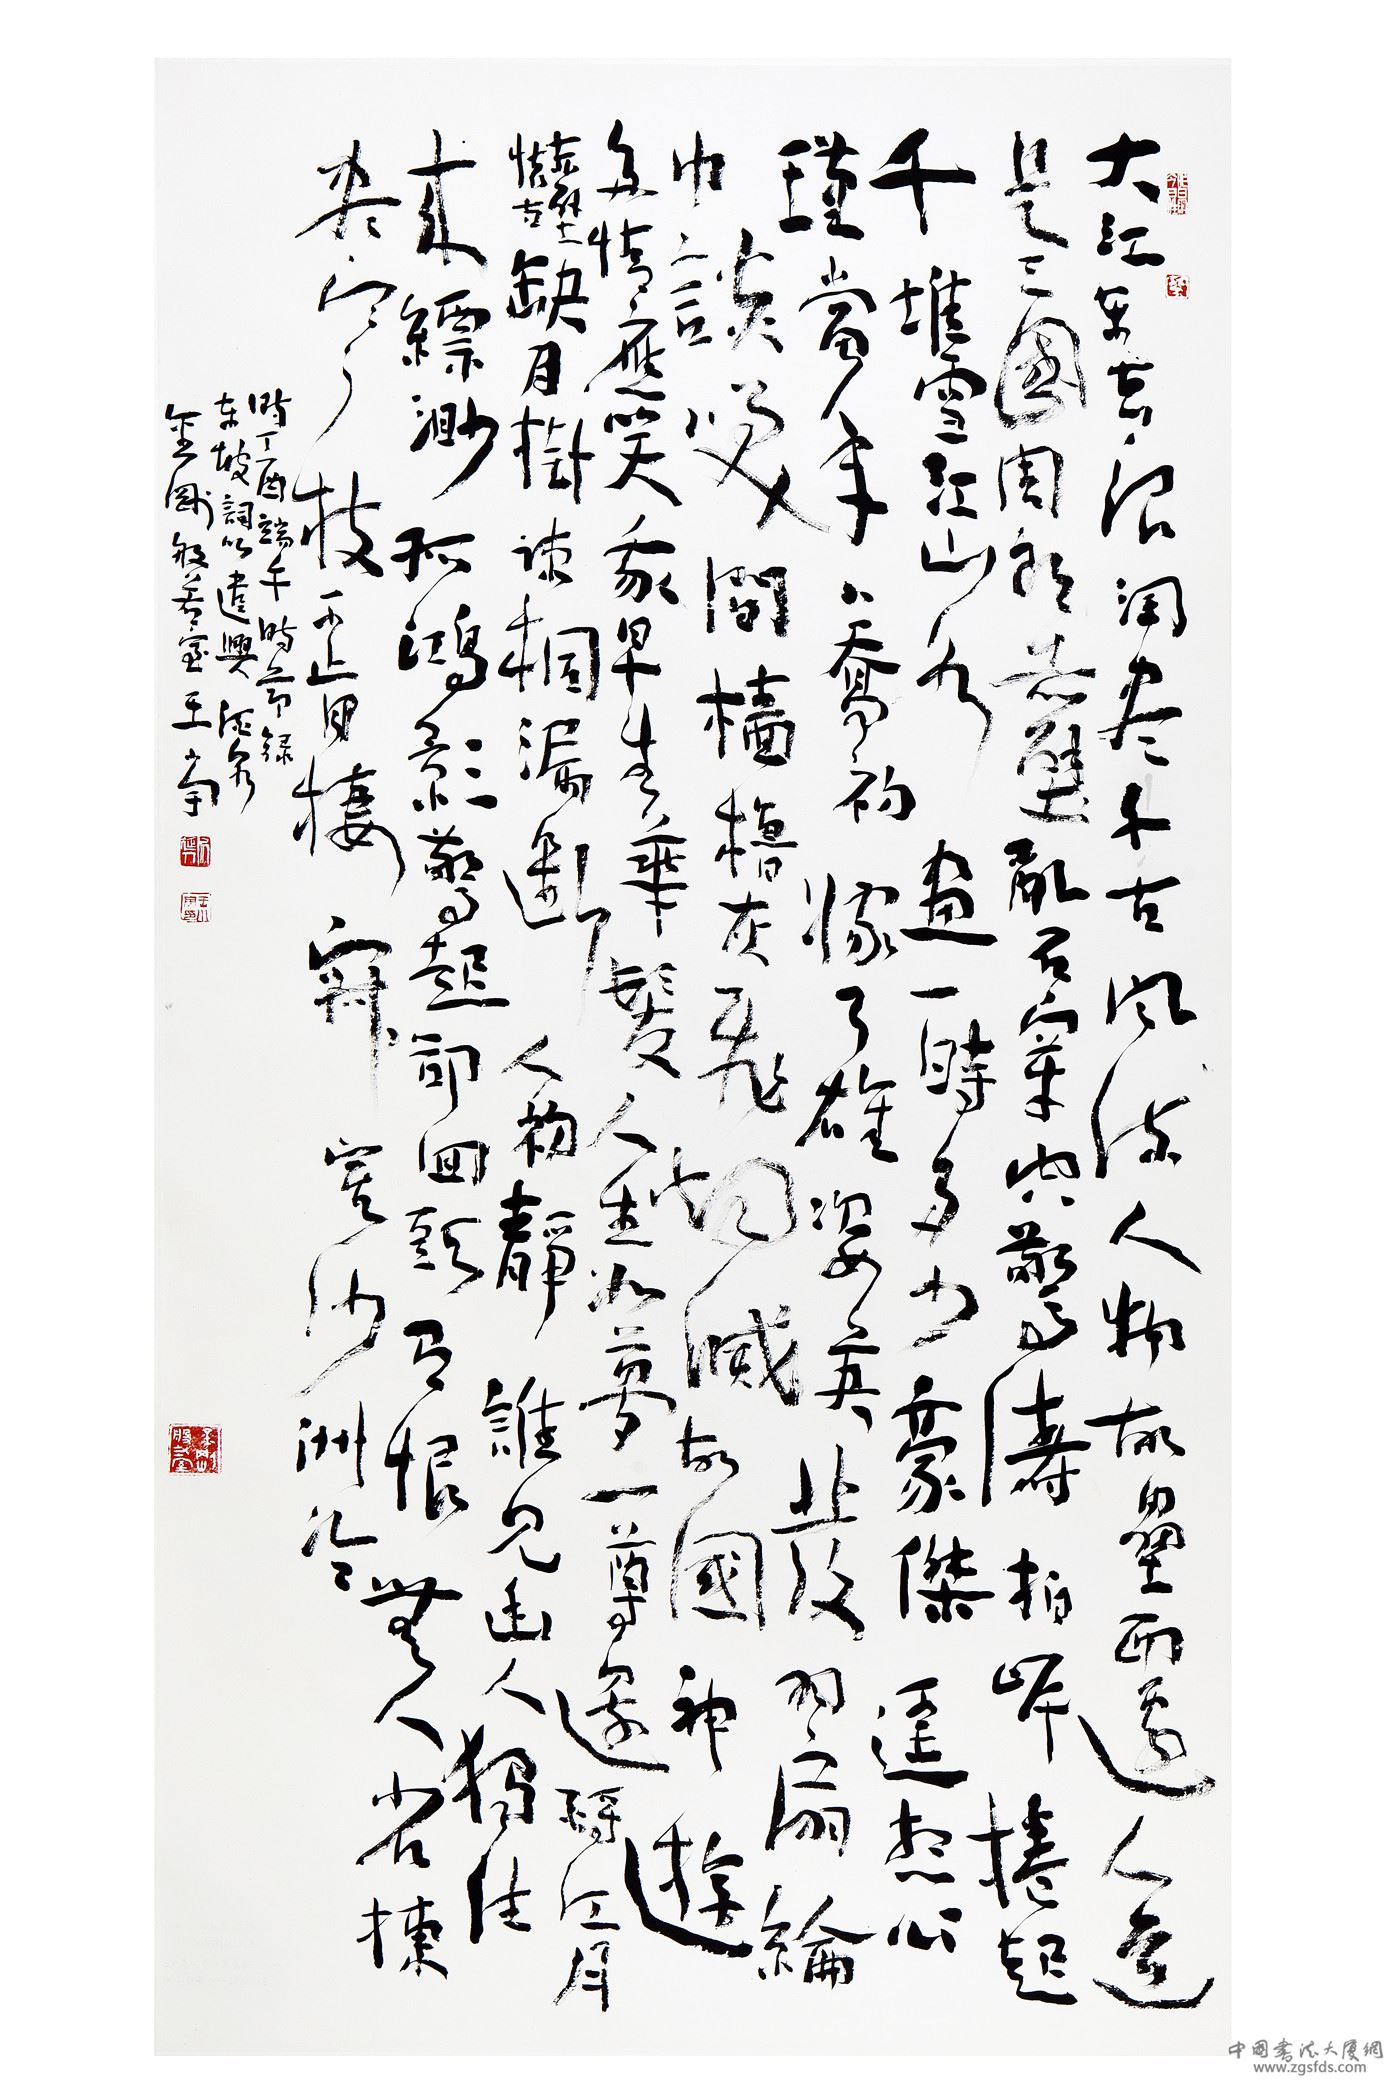 大江东去浪淘尽千古風流人物故壘西邊人道
是三國周郎赤壁亂石穿空驚濤拍岸捲起
千堆雪江山如畫一時多少豪傑遥想公
瑾當年小喬初嫁了雄姿英發羽扇綸
巾談笑間檣櫓灰飛烟滅故國神遊
多情應笑我早生華髮人生如夢一尊還酹江月
赤壁
懷古
缺月掛疎桐漏斷人初靜誰見幽人獨往
來縹渺孤鴻影驚起卻回頭有恨無人省揀
盡寒枝不肯棲寂寞沙洲冷
時丁酉端午時節録
东坡詞以遣興酒泉
金剛般若室王南
中国書法大厦網
www.zgsfds.com